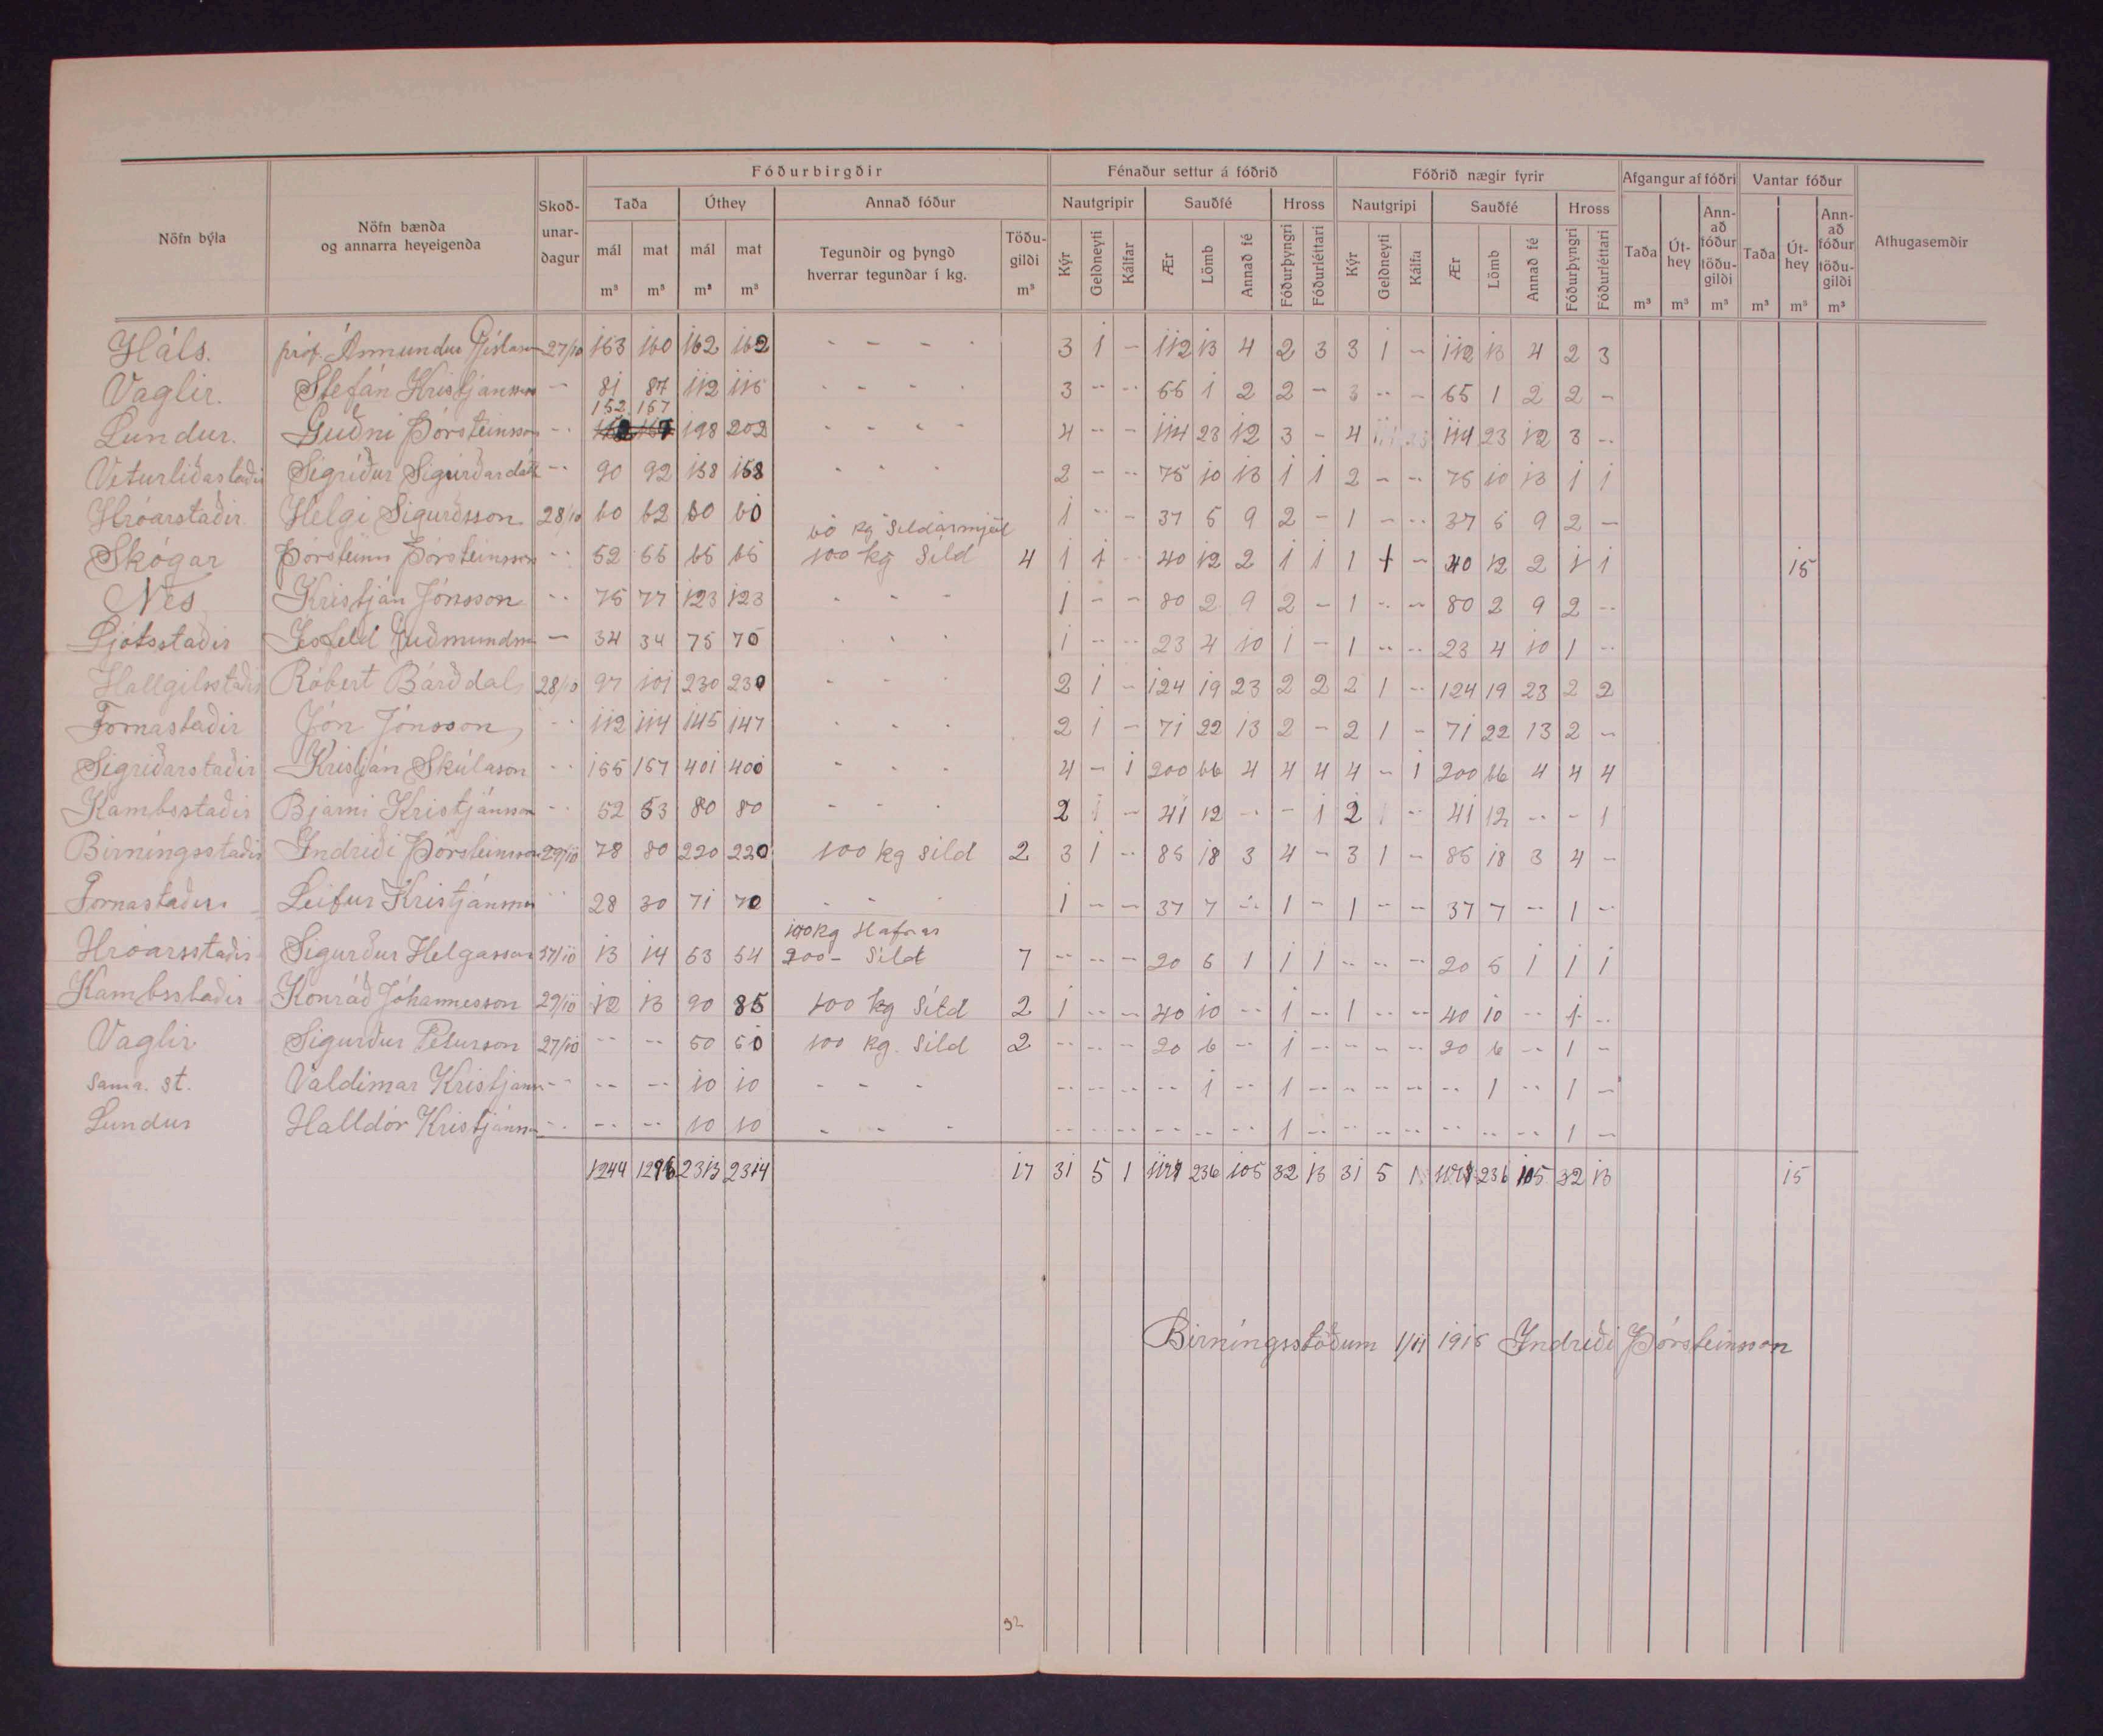 Fóðurbirgðir Fénaður settur á fóðrið Fóðrið nægir fyrir Afgangur af fóðri Vantar fóður
Nöfn býla Nöfn bænda og annarra heyeigenda Skoð-unar-dagur Taða Úthey Annað fóður Nautgripir Sauðfé Hross Nautgripi Sauðfé Hross Taða Út-hey Ann-að fóður töðu-gildi Taða Út-hey Ann-að fóður töðu-gildi Athugasemdir
mál mat mál mat Tegundir og þyngd hverrar tegundar í kg. Töðu-gildi Kýr Geldneyti Kálfar Ær Lömb Annað fé Fóðurþyngri Fóðurléttari Kýr Geldneyti Kálfa Ær Lömb Annað fé Fóðurþyngri Fóðurléttari
m³ m³ m³ m³ m³ m³ m³ m³ m³ m³ m³
Háls. próf. Ásmundur Gíslason 27/10 163 160 162 162 - - - - 3 1 - 112 13 4 2 3 3 1 - 112 13 4 2 3
Vaglir. Stefán Kristjánsson - 81 87 112 115 - - - - 3 - - 65 1 2 2 - 3 - - 65 1 2 2 -
Lundur. Guðni Þórsteinsson - 152 157 198 202 - - - - 4 - - 114 23 12 3 - 4 114 23 12 3 -
Veturliðastaðir Sigríður Sigurðardótt - 90 92 158 158 - - - 2 - - 75 10 13 1 1 2 - - 75 10 13 1 1
Hróarstaðir Helgi Sigurðsson 28/10 60 62 60 60 1 - - 37 5 9 2 - 1 - - 37 5 9 2 -
60 kg Síldarmjöl
Skógar Þórsteinn Þórsteinsson - 52 55 65 65 100 kg Síld 4 1 1 - 40 12 2 1 1 1 1 - 40 12 2 1 1 15
Nes Kristján Jónsson - 75 77 123 123 - - - 1 - - 80 2 9 2 - 1 - - 80 2 9 2 -
Ljótsstaðir Guðmundss - 34 34 75 75 - - - 1 - - 23 4 10 1 - 1 - - 23 4 10 1 -
Hallgilsstaðir Róbert Bárðdal 28/10 97 101 230 230 - - - 2 1 - 124 19 23 2 2 2 1 - 124 19 23 2 2
Fornastaðir Jón Jónsson - 112 114 145 147 - - - 2 1 - 71 22 13 2 - 2 1 - 71 22 13 2 -
Sigríðarstaðir Kristján Skúlason - 155 157 401 400 - - - 4 - 1 200 66 4 4 4 4 - 1 200 66 4 4 4
Kambsstaðir Bjarni Kristjánsson - 52 53 80 80 - - - 2 1 - 41 12 - - 1 2 1 - 41 12 - - 1
Birningsstaðir Indriði Þórsteinsson 29/10 78 80 220 220 100 kg síld 2 3 1 - 85 18 3 4 - 3 1 - 85 18 3 4 -
Fornastaðir Leifur Kristjánsson - 28 30 71 70 - - - 1 - - 37 7 - 1 - 1 - - 37 7 - 1 -
100 kg Hafrar
Hróarsstaðir Sigurður Helgasson 27/10 13 14 53 54 200 - Síld 7 - - - 20 5 1 1 1 - - - 20 5 1 1 1
Kambsstaðir Konráð Jóhannesson 29/10 12 13 90 85 100 kg Síld 2 1 - - 40 10 - 1 - 1 - - 40 10 - 1 -
Vaglir Sigurður Péturson 27/10 - - 50 50 100 kg. Síld 2 - - - 20 6 - 1 - - - - 20 6 - 1 -
Sama. st. Valdimar Kristjáns - - - 10 10 - - - - - - - 1 - 1 - - - - - 1 - 1 -
Lundur Halldór Kristjánss - - - 10 10 - - - - - - - - - 1 - - - - - - - 1 -
1244 1296 2313 2314 17 31 5 1 236 105 32 13 31 5 1 236 105 32 13 15
Birningsstöðum 1/11 1915 Indriði Þórsteinsson
32